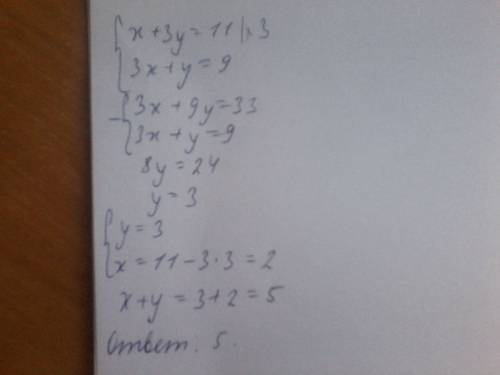 x+3y=11|·3
3x+y=9
3x+9y=33
3x+y=9
8y=24
y=3
y=3
x=11-3·3=2
x+y=3+2=5
Ответ: 5.